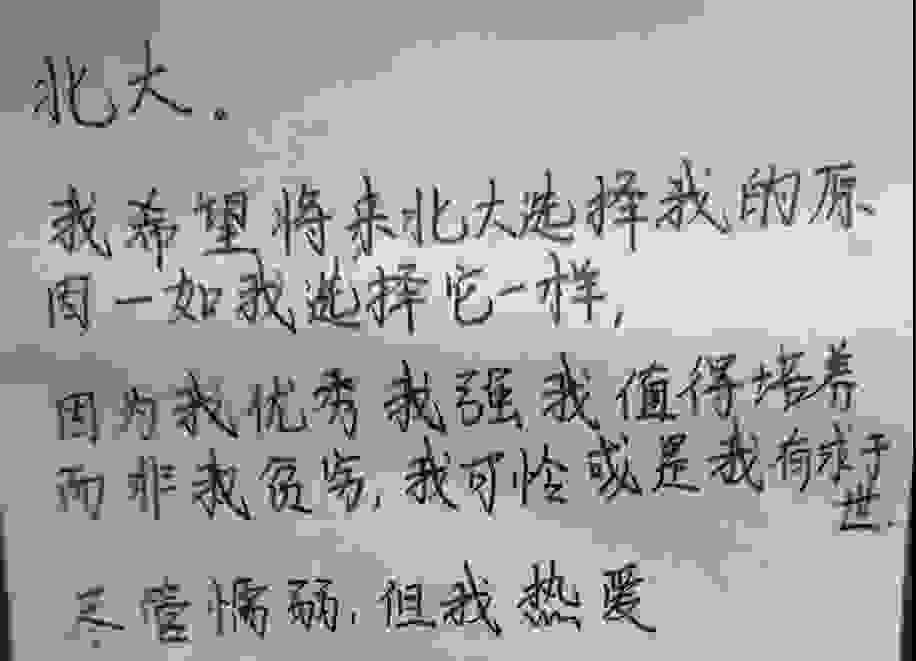 北大。
我希望将来北大选择我的原
因一如我选择它一样,
因为我优秀我强我值得培养
而非我负伤,我可怜或是我有求于
世.
尽管懦弱,但我热爱